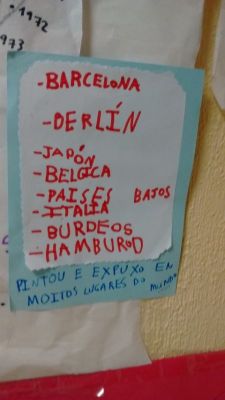 1972
1973
-BARCELONA
-BERLÍN
-JAPÓN
-BELGICA
-PAISES BAJOS
-ITALIA
-BURDEOS
-HAMBURGO
PINTOU E EXPUXO EN
MOITOS LUGARES DO MUNDO